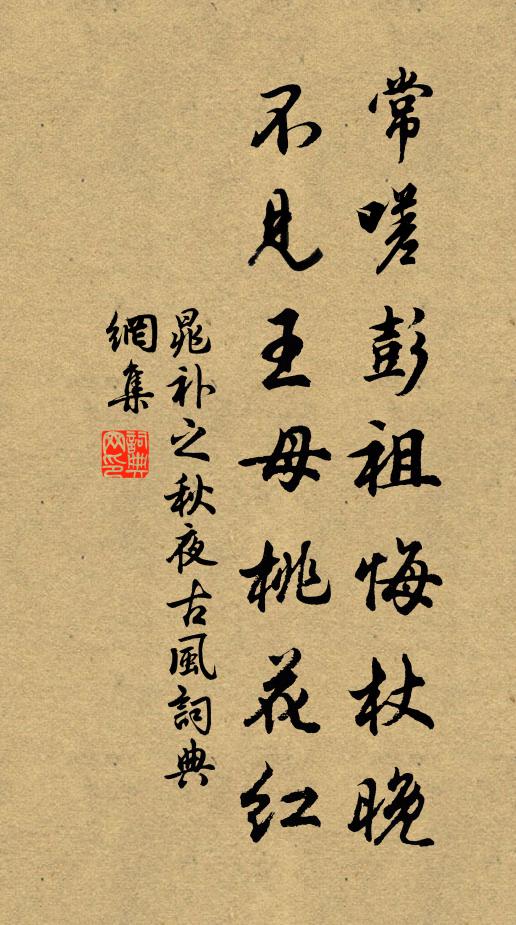 常嗟彭祖悔杖晚
不見王母桃花红
晁补之秋夜古風詞典
網集
詞典
网印